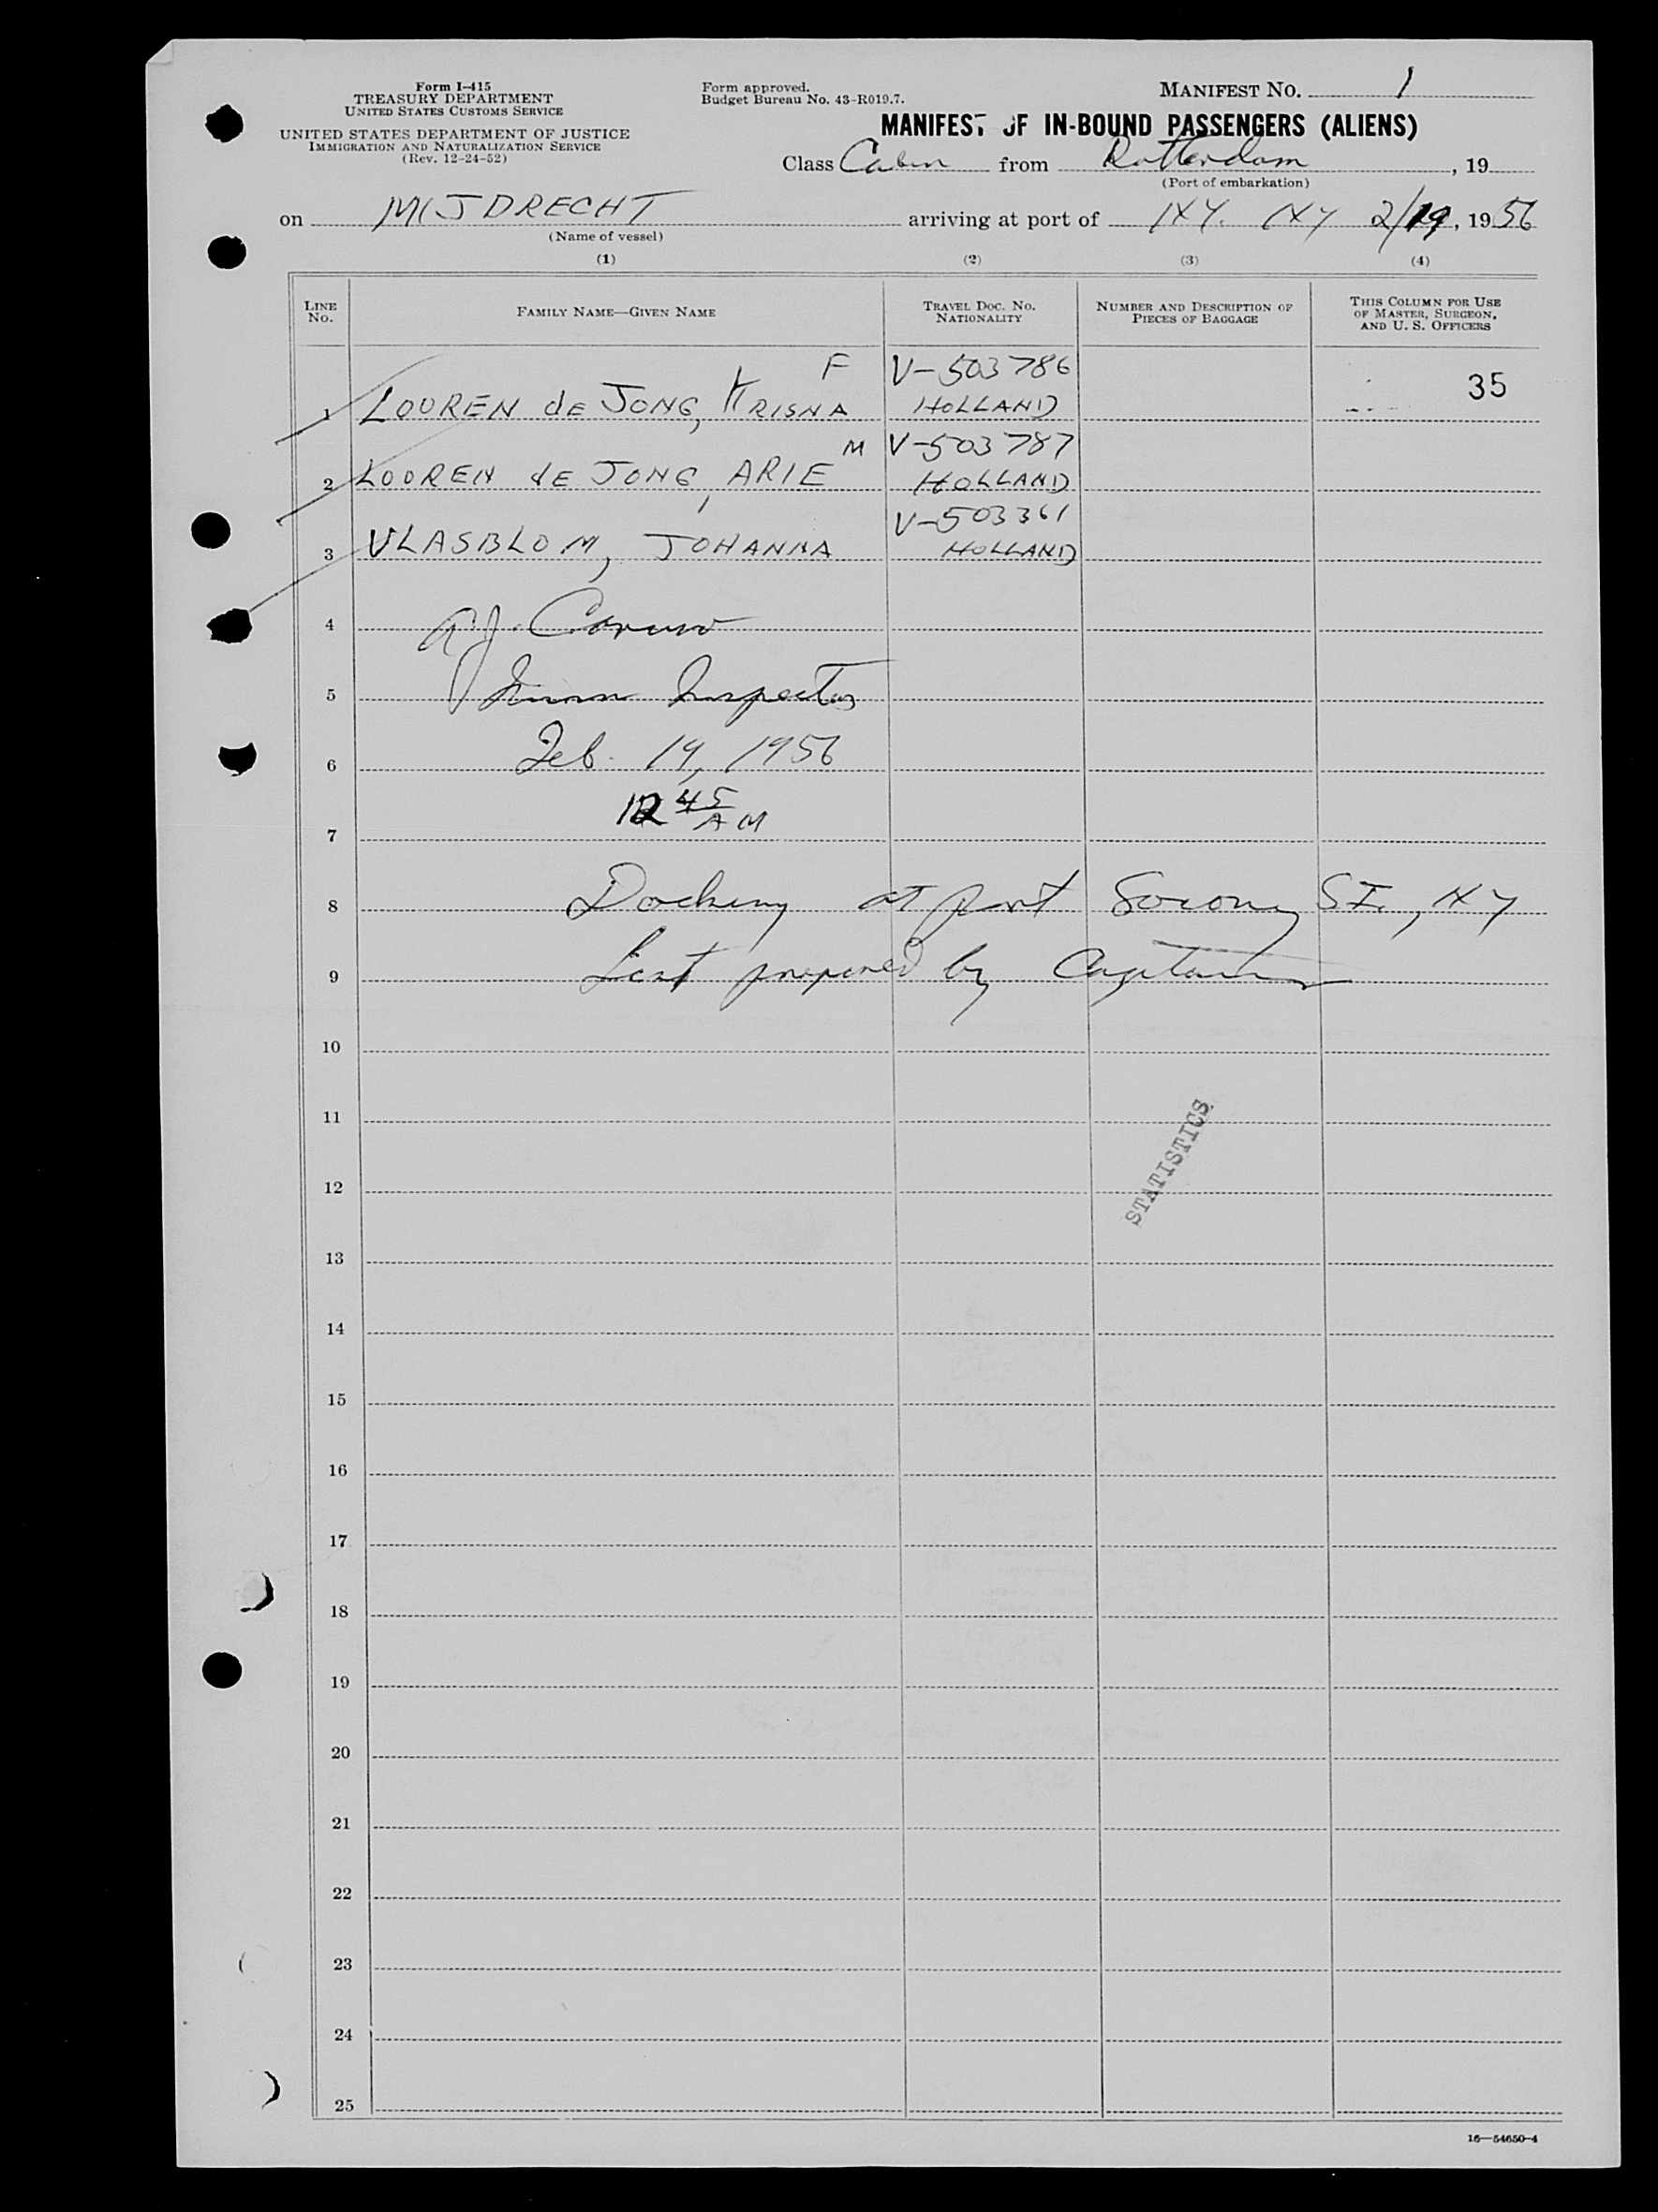 Form I-415
TREASURY DEPARTMENT
UNITED STATES CUSTOMS SERVICE
UNITED STATES DEPARTMENT OF JUSTICE
IMMIGRATION AND NATURALIZATION SERVICE
(Rev. 12-24-52)
Form approved.
Budget Bureau No. 43-R019.7.
MANIFEST NO. 1
MANIFEST OF IN-BOUND PASSENGERS (ALIENS)
Class Cabin from Rotterdam, 19
(Port of embarkation)
on MIJDRECHT arriving at port of NY. NY 2/19, 1956
(Name of vessel)
(1) (2) (3) (4)
LINE NO. FAMILY NAME—GIVEN NAME TRAVEL DOC. NO. NATIONALITY NUMBER AND DESCRIPTION OF PIECES OF BAGGAGE THIS COLUMN FOR USE OF MASTER, SURGEON, AND U. S. OFFICERS
F V-503786 35
1 LOOREN de JONG, KRISNA HOLLAND
M V-503787
2 LOOREN de JONG, ARIE HOLLAND
V-503361
3 VLASBLOM, JOHANNA HOLLAND
4 A.J. Caruso
5 Immn Inspector
6 Feb. 19, 1956
12 45 AM
7
8 Docking at port Socony S.I., NY
9 List prepared by Captain
10
11
STATISTICS
12
13
14
15
16
17
18
19
20
21
22
23
24
25
16—54650-4